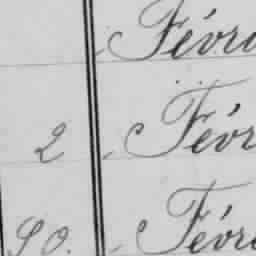 Févr
2 Févr
90. Févr